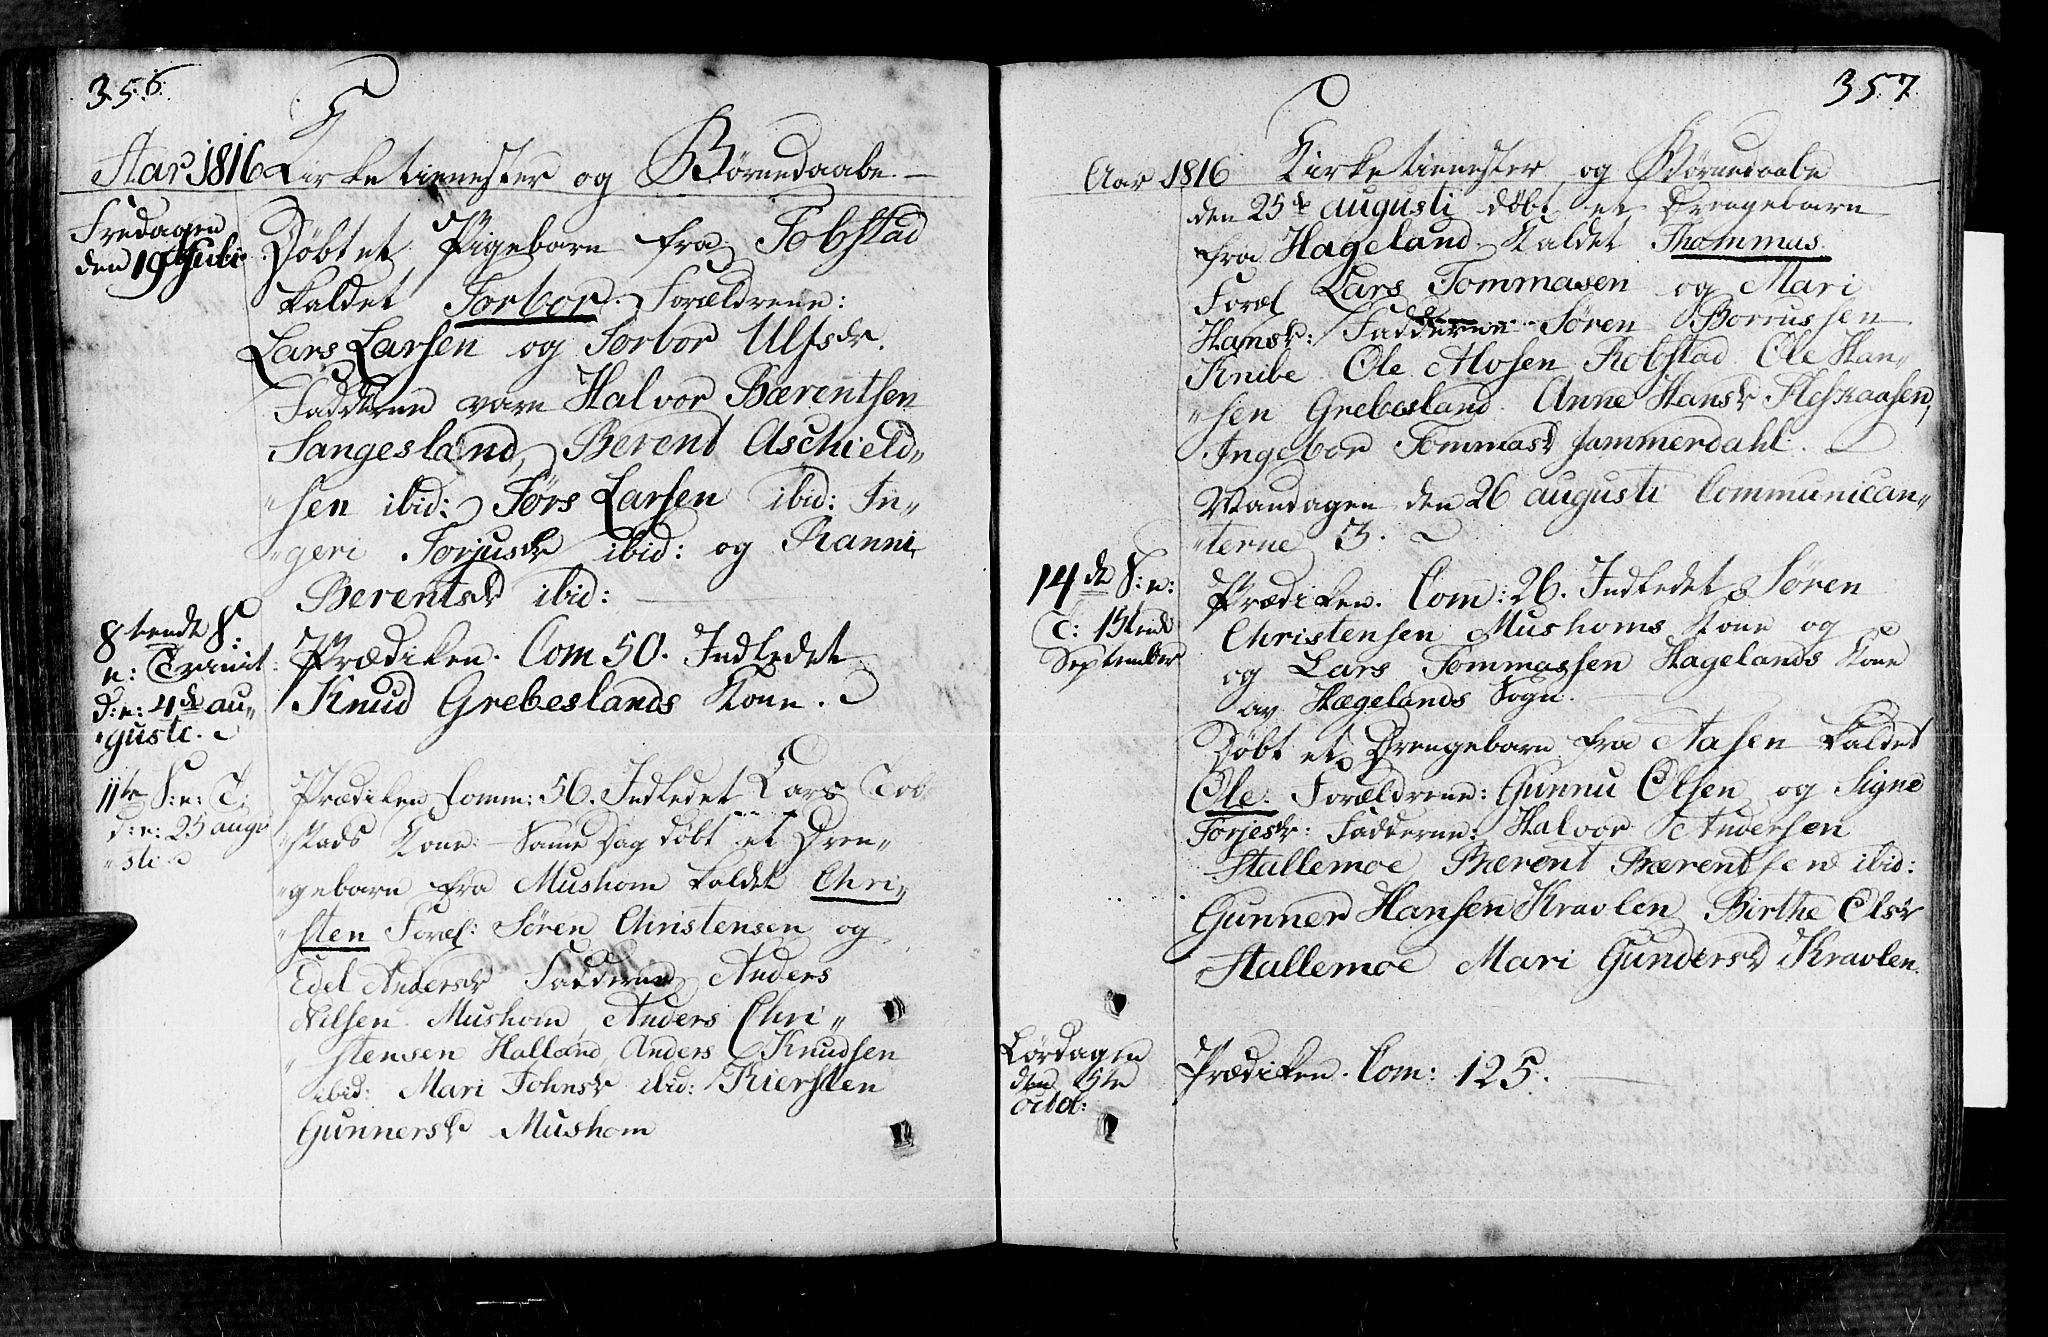 356.
Aar 1816 Kirketienester og Børnedaabe
Fredagen
den 19de Juli
Døbt et Pigebarn fra Tobstad
kaldet Torbor. Forældrene:
Lars Larsen og Torbor Ulfsdr.
Fadderne vare Halvor Bærentsen
Sangesland, Berent Aschield„
„sen ibid: Jørs Larsen ibid: In„
„geri Torjusdr ibid: og Ranni
Berentsdr ibid:
8tende S:
n: Trinit:
d: e: 4de au„
„gusti.
Prædiken. Com 50. Indledet
Knud Grebeslands Kone.
11te S: e: T:
d: e: 25 augu
„sti
Prædiken Comm: 56. Indledet Lars Tob
„stads Kone. Samme Dag døbt et Dren„
„gebarn fra Mushom kaldet Chri„
„sten Foræl: Søren Christensen og
Edel Andersdr Fadderne Anders
Nilsen Mushom, Anders Chri„
„stensen Halland, Anders Knudsen
ibid: Mari Johnsdr ibid: Kiersten
Gunnersdr Mushom
357
Aar 1816 Kirketienester og Børnedaabe
den 25de augusti døbt et Drengebarn
fra Hageland kaldet Thommas
Foræl Lars Tommasen og Mari
Hansdr: Fadderne Søren Borrussen
Knibe Ole Alosen Robstad Ole Han„
„sen Grebesland. Anne Hansdr
Ingebor Tommasdr Jammerdahl.
Mandagen den 26 augusti Communican„
„terne 3.
14de S: e:
T: 15tende
September
Prædiken. Com: 26. Indledet Søren
Christensen Mushoms Kone og
og Lars Tommassen Hagelands Kone
av Hægelands Sogn.
Døbt et Drengebarn fra Aasen kaldet
Ole. Forældrene: Gunnu Olsen og Signe
Torjesdr: Fadderne: Halvor Andersen
Stallemoe Bærent Bærentsen ibid:
Gunner Hansen Kravlen Birthe Olsdr
Stallemoe Mari Gundersdr Kravlen.
Lørdagen
den 5te
Octob:
Prædiken. Com: 125.